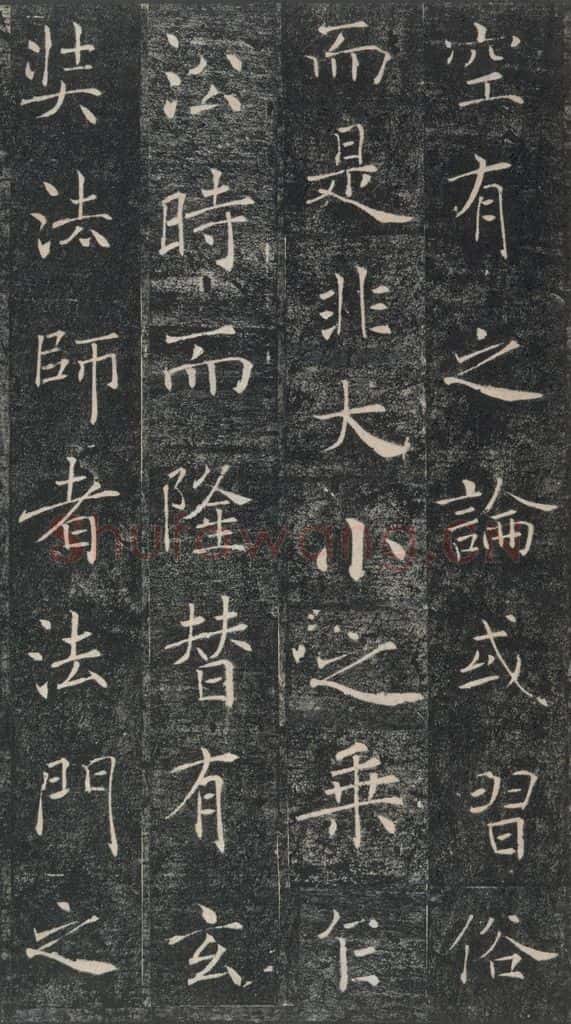 空有之論或習俗
而是非大小之乘乍
沿時而隆替有玄
奘法師者法門之
shufawang.cn